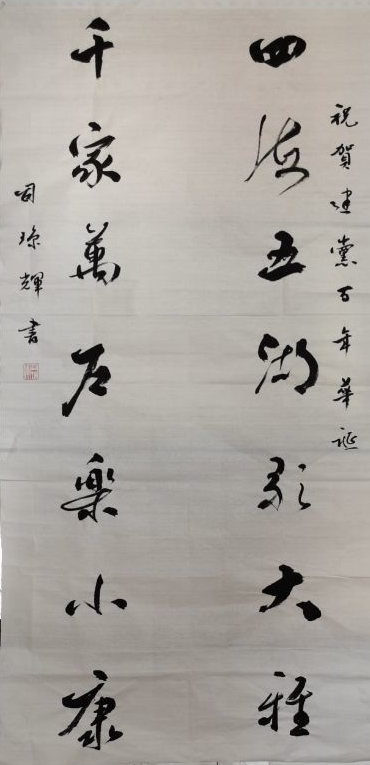 祝賀建黨百年華誕
四海五湖歌大雅
千家萬戶樂小康
琼輝書